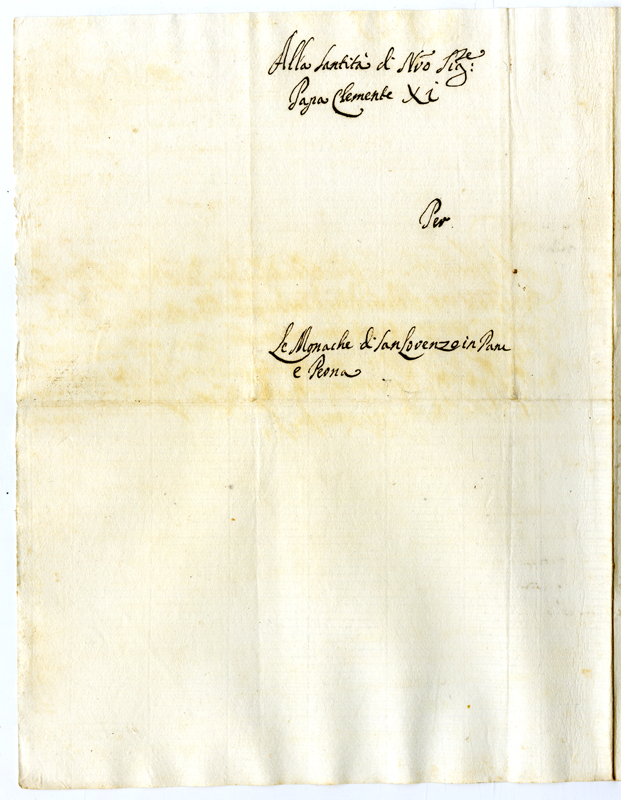 Alla Santità di Nrō Sig:re
Papa Clemente Xi
Per
Le Monache di San Lorenzo in Pane
e Perna